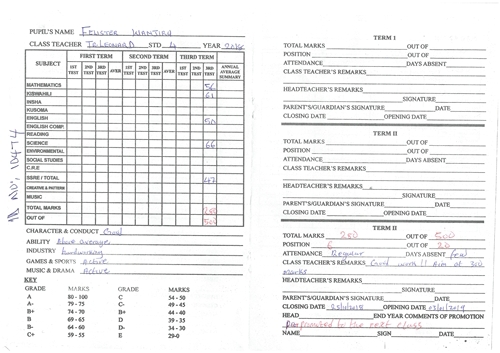 PUPIL'S NAME Felister Wanjiru
CLASS TEACHER Tr. Leonard STD 4 YEAR
SUBJECT FIRST TERM SECOND TERM THIRD TERM
1ST TEST 2ND TEST 3RD TEST AVER 1ST TEST 2ND TEST 3RD TEST AVER 1ST TEST 2ND TEST 3RD TEST ANNUAL AVERAGE SUMMARY
MATHEMATICS 56
KISWAHILI
INSHA
KUSOMA
ENGLISH 50
ENGLISH COMP.
READING
SCIENCE 66
ENVIRONMENTAL
SOCIAL STUDIES
C.R.E
SSRE / TOTAL 47
CREATIVE & PATTERN
MUSIC
TOTAL MARKS 280
OUT OF 500
CHARACTER & CONDUCT Good
ABILITY Above average
INDUSTRY hardworking
GAMES & SPORTS Active
MUSIC & DRAMA Active
KEY
GRADE MARKS GRADE MARKS
A 80 - 100 C 54 - 50
A- 79 - 75 C- 49 - 45
B+ 74 - 70 B+ 44 - 40
B 69 - 65 D 39 - 35
B- 64 - 60 D- 34 - 30
C+ 59 - 55 E 29-0
TERM I
TOTAL MARKS OUT OF
POSITION OUT OF
ATTENDANCE DAYS ABSENT
CLASS TEACHER'S REMARKS
HEADTEACHER'S REMARKS
SIGNATURE
PARENT'S/GUARDIAN'S SIGNATURE DATE
CLOSING DATE OPENING DATE
TERM II
TOTAL MARKS OUT OF
POSITION OUT OF
ATTENDANCE DAYS ABSENT
CLASS TEACHER'S REMARKS
HEADTEACHER'S REMARKS
SIGNATURE
PARENT'S/GUARDIAN'S SIGNATURE DATE
CLOSING DATE OPENING DATE
TERM II
TOTAL MARKS 280 OUT OF 500
POSITION 6 OUT OF 20
ATTENDANCE Regular DAYS ABSENT few
CLASS TEACHER'S REMARKS Good work!! Aim at 300
marks
HEADTEACHER'S REMARKS
SIGNATURE
PARENT'S/GUARDIAN'S SIGNATURE DATE
CLOSING DATE OPENING DATE
HEAD END YEAR COMMENTS OF PROMOTION
promoted to the next class
NAME SIGN DATE